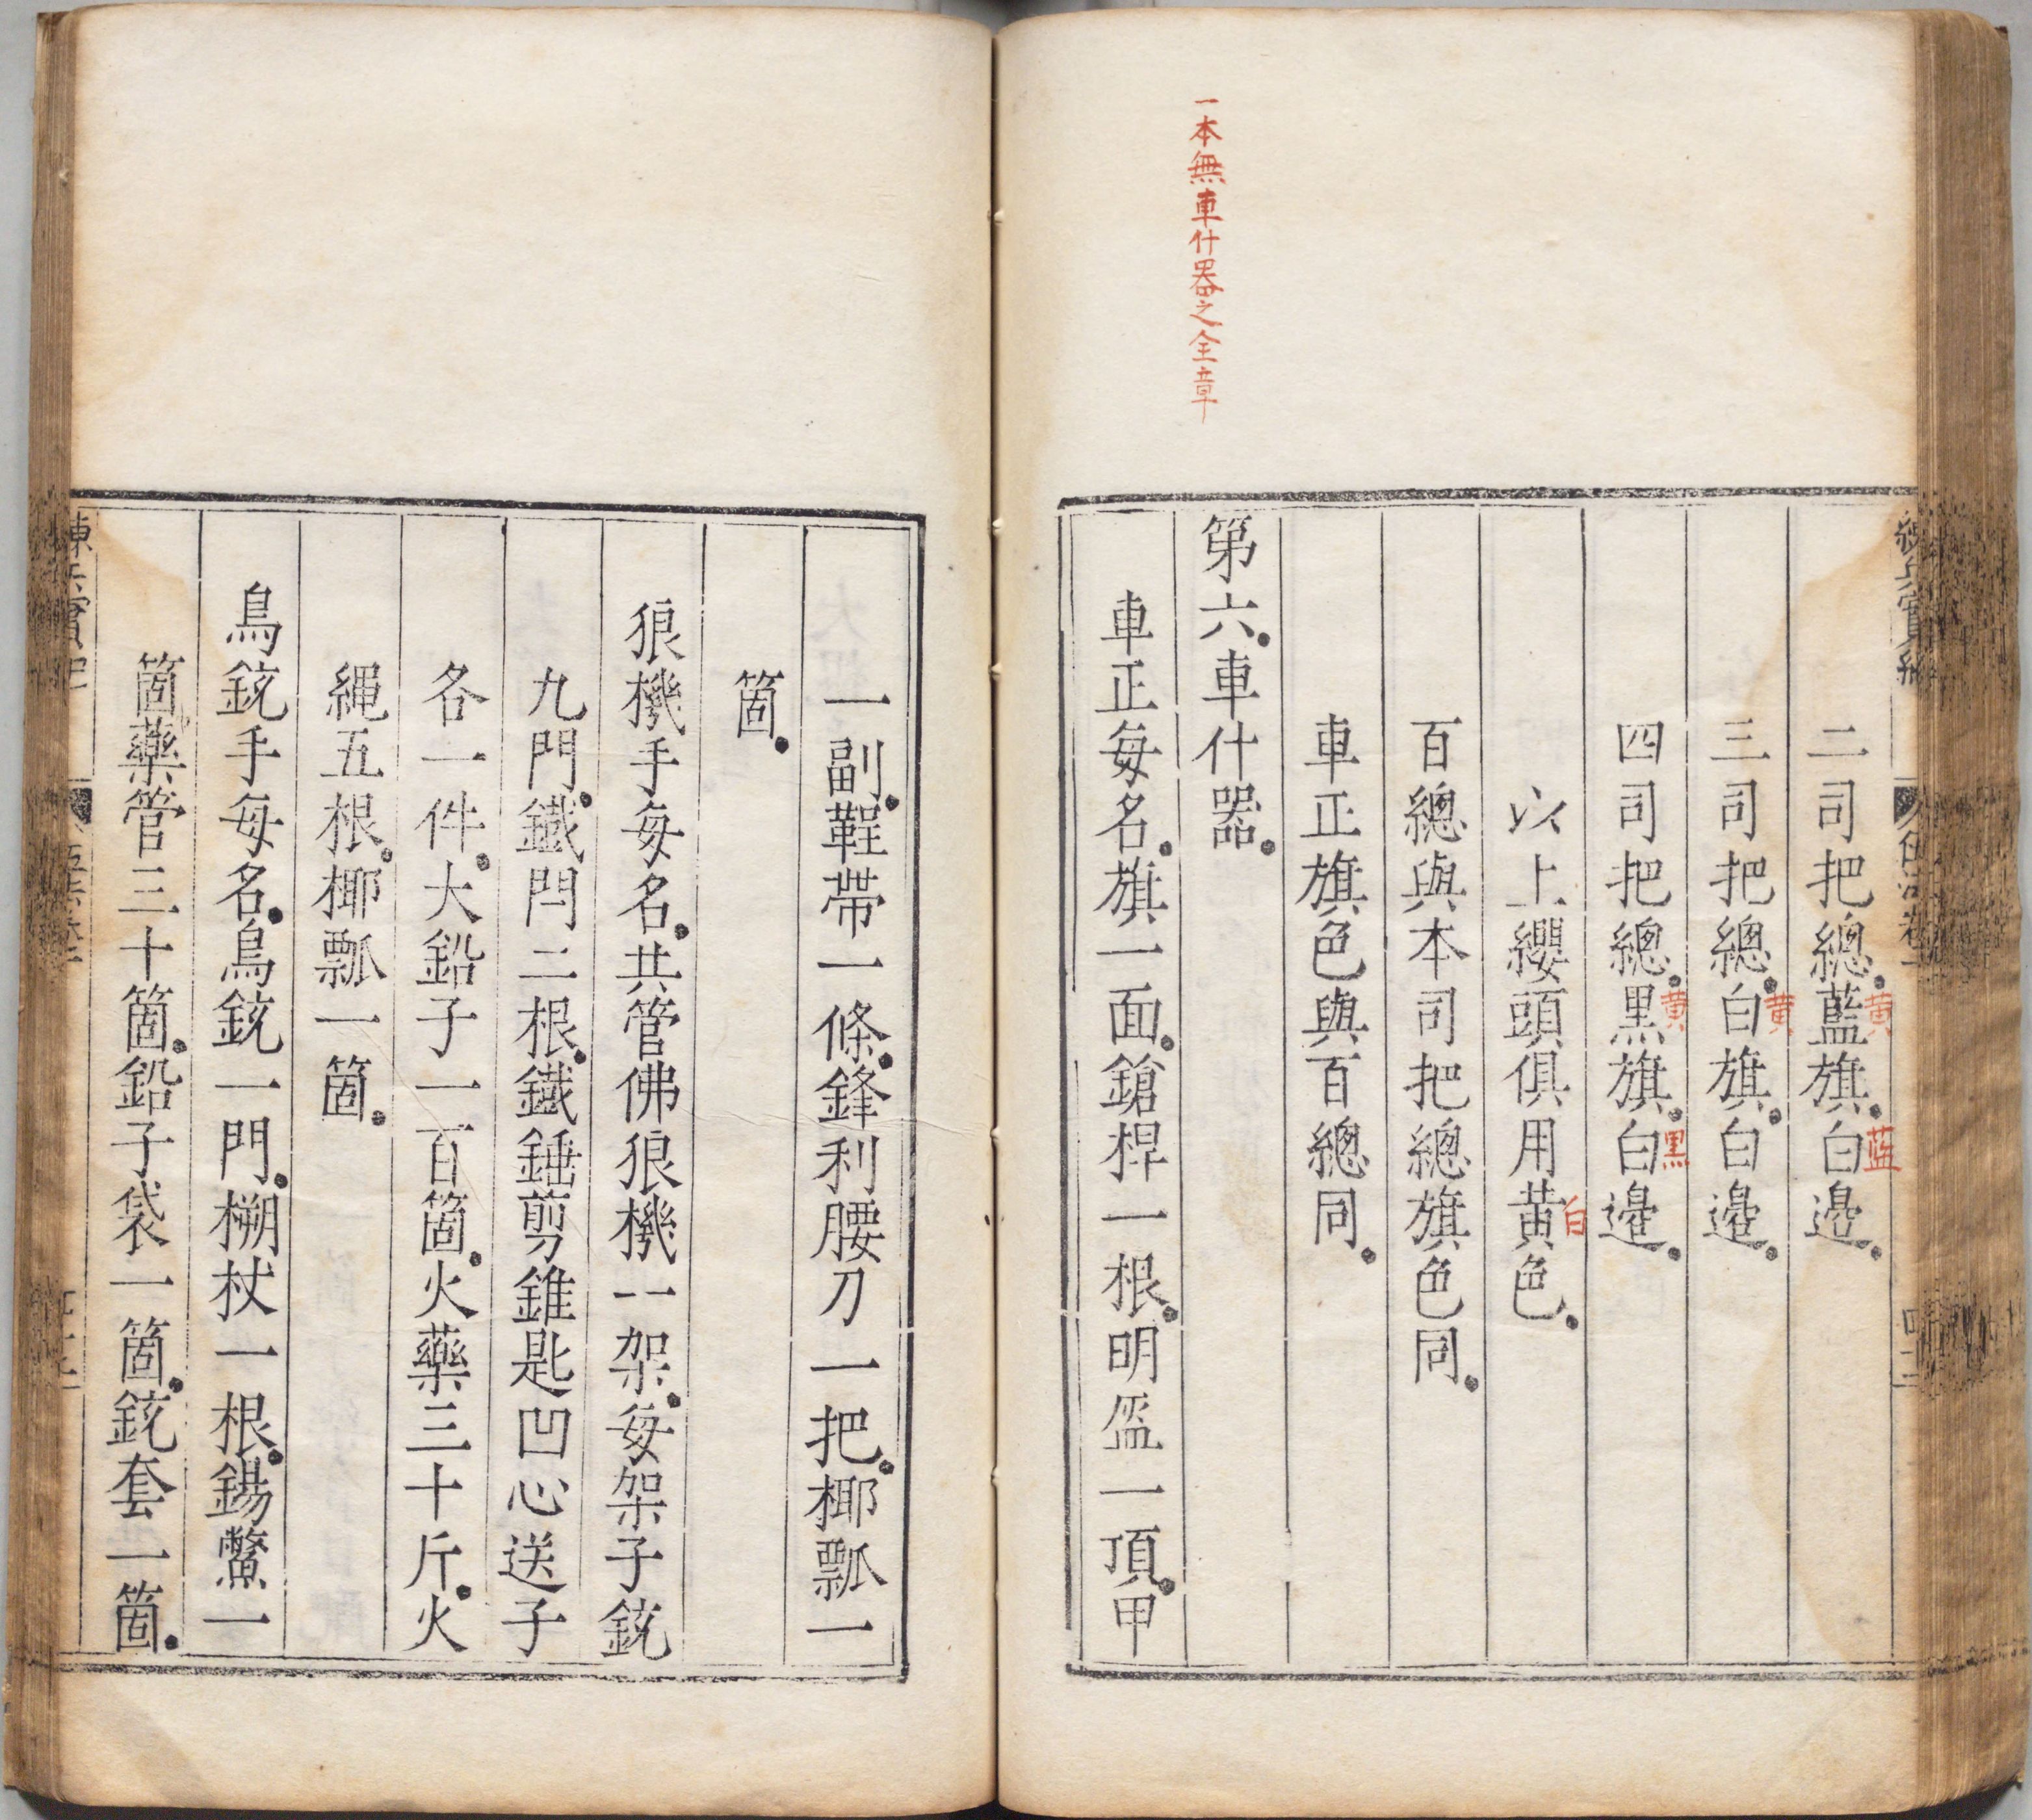 一本無車什器之全章
二司把總藍旗白邊
黄
藍
三司把總白旗白邊
黄
四司把總黑旗白邊
黄
黑
以上纓頭俱用黄色
白
百總與本司把總旗色同
車正旗色與百總同
第六車什器
車正每名旗一面鎗桿一根明盔一頂甲
一副鞓帶一條鋒利腰刀一把椰瓢一
箇
狼機手每名共管佛狼機一架每架子銃
九門鐵閂二根鐵錘剪錐匙凹心送子
各一件大鉛子一百箇火藥三十斤火
繩五根椰瓢一箇
鳥銃手每名鳥銃一門搠杖一根錫鱉一
箇藥管三十箇鉛子袋一箇銃套一箇